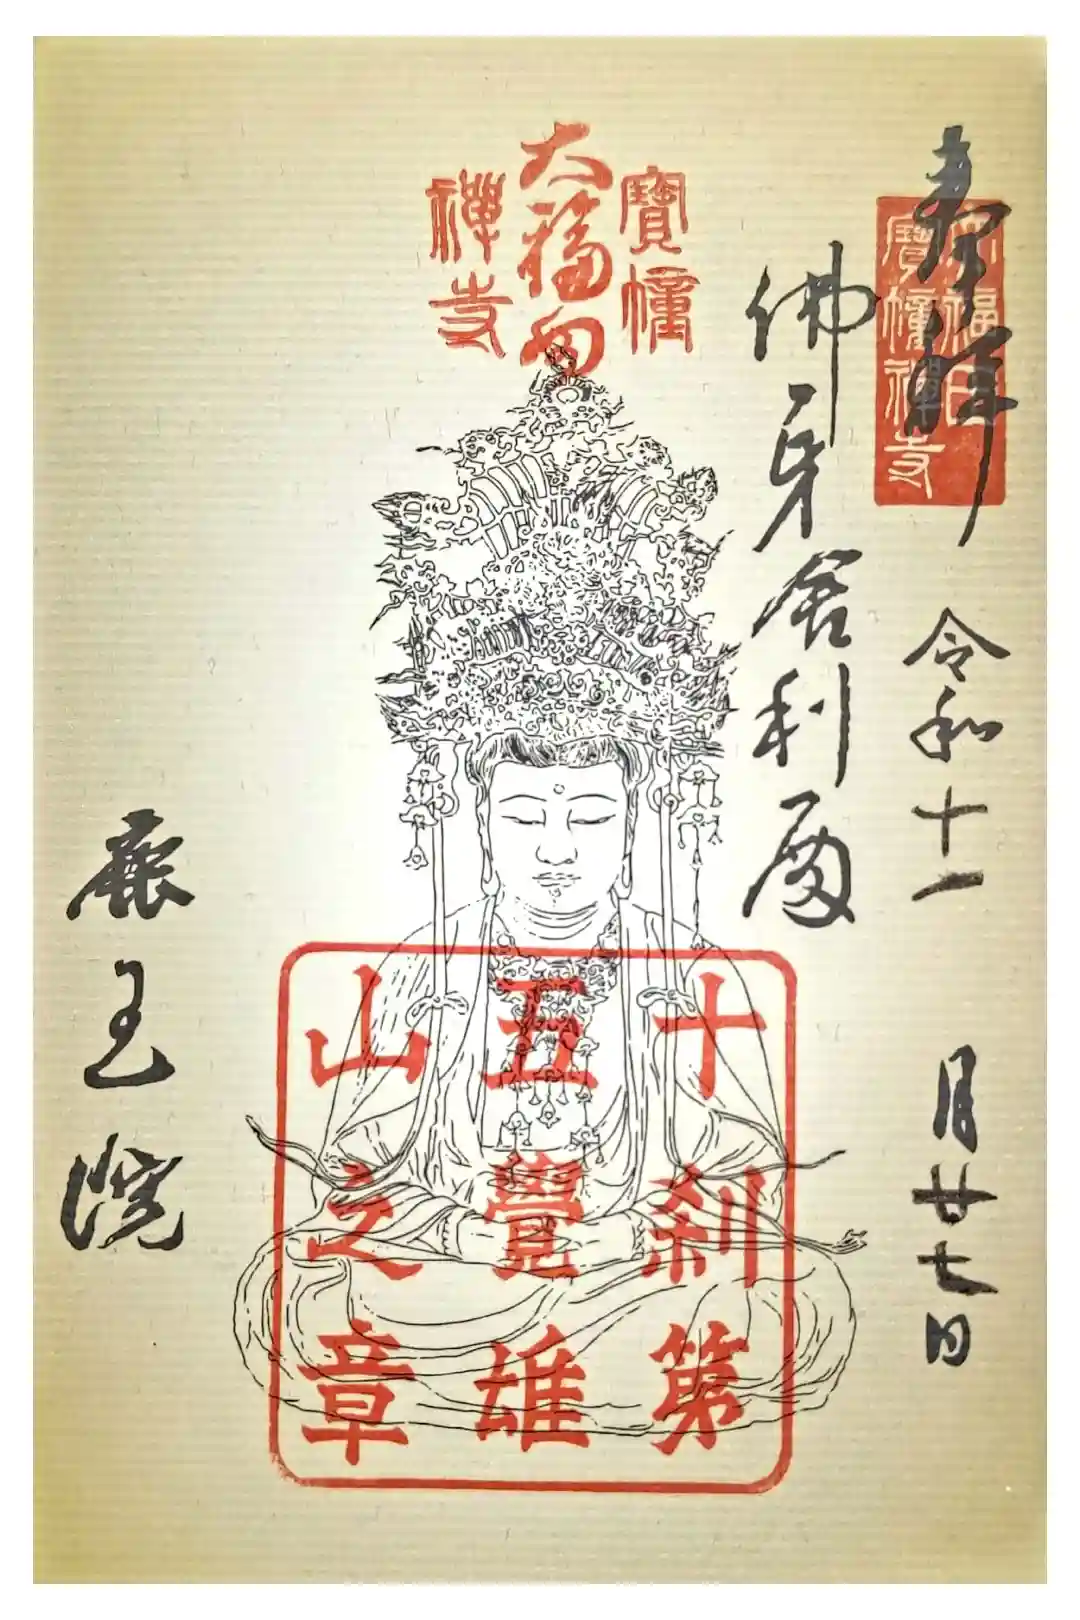 奉拝
令和十一月廿七日
大福田
寶幢禪寺
佛牙舎利殿
寶幢
大福田
禪寺
十刹第
五覺雄
山之章
鹿王院